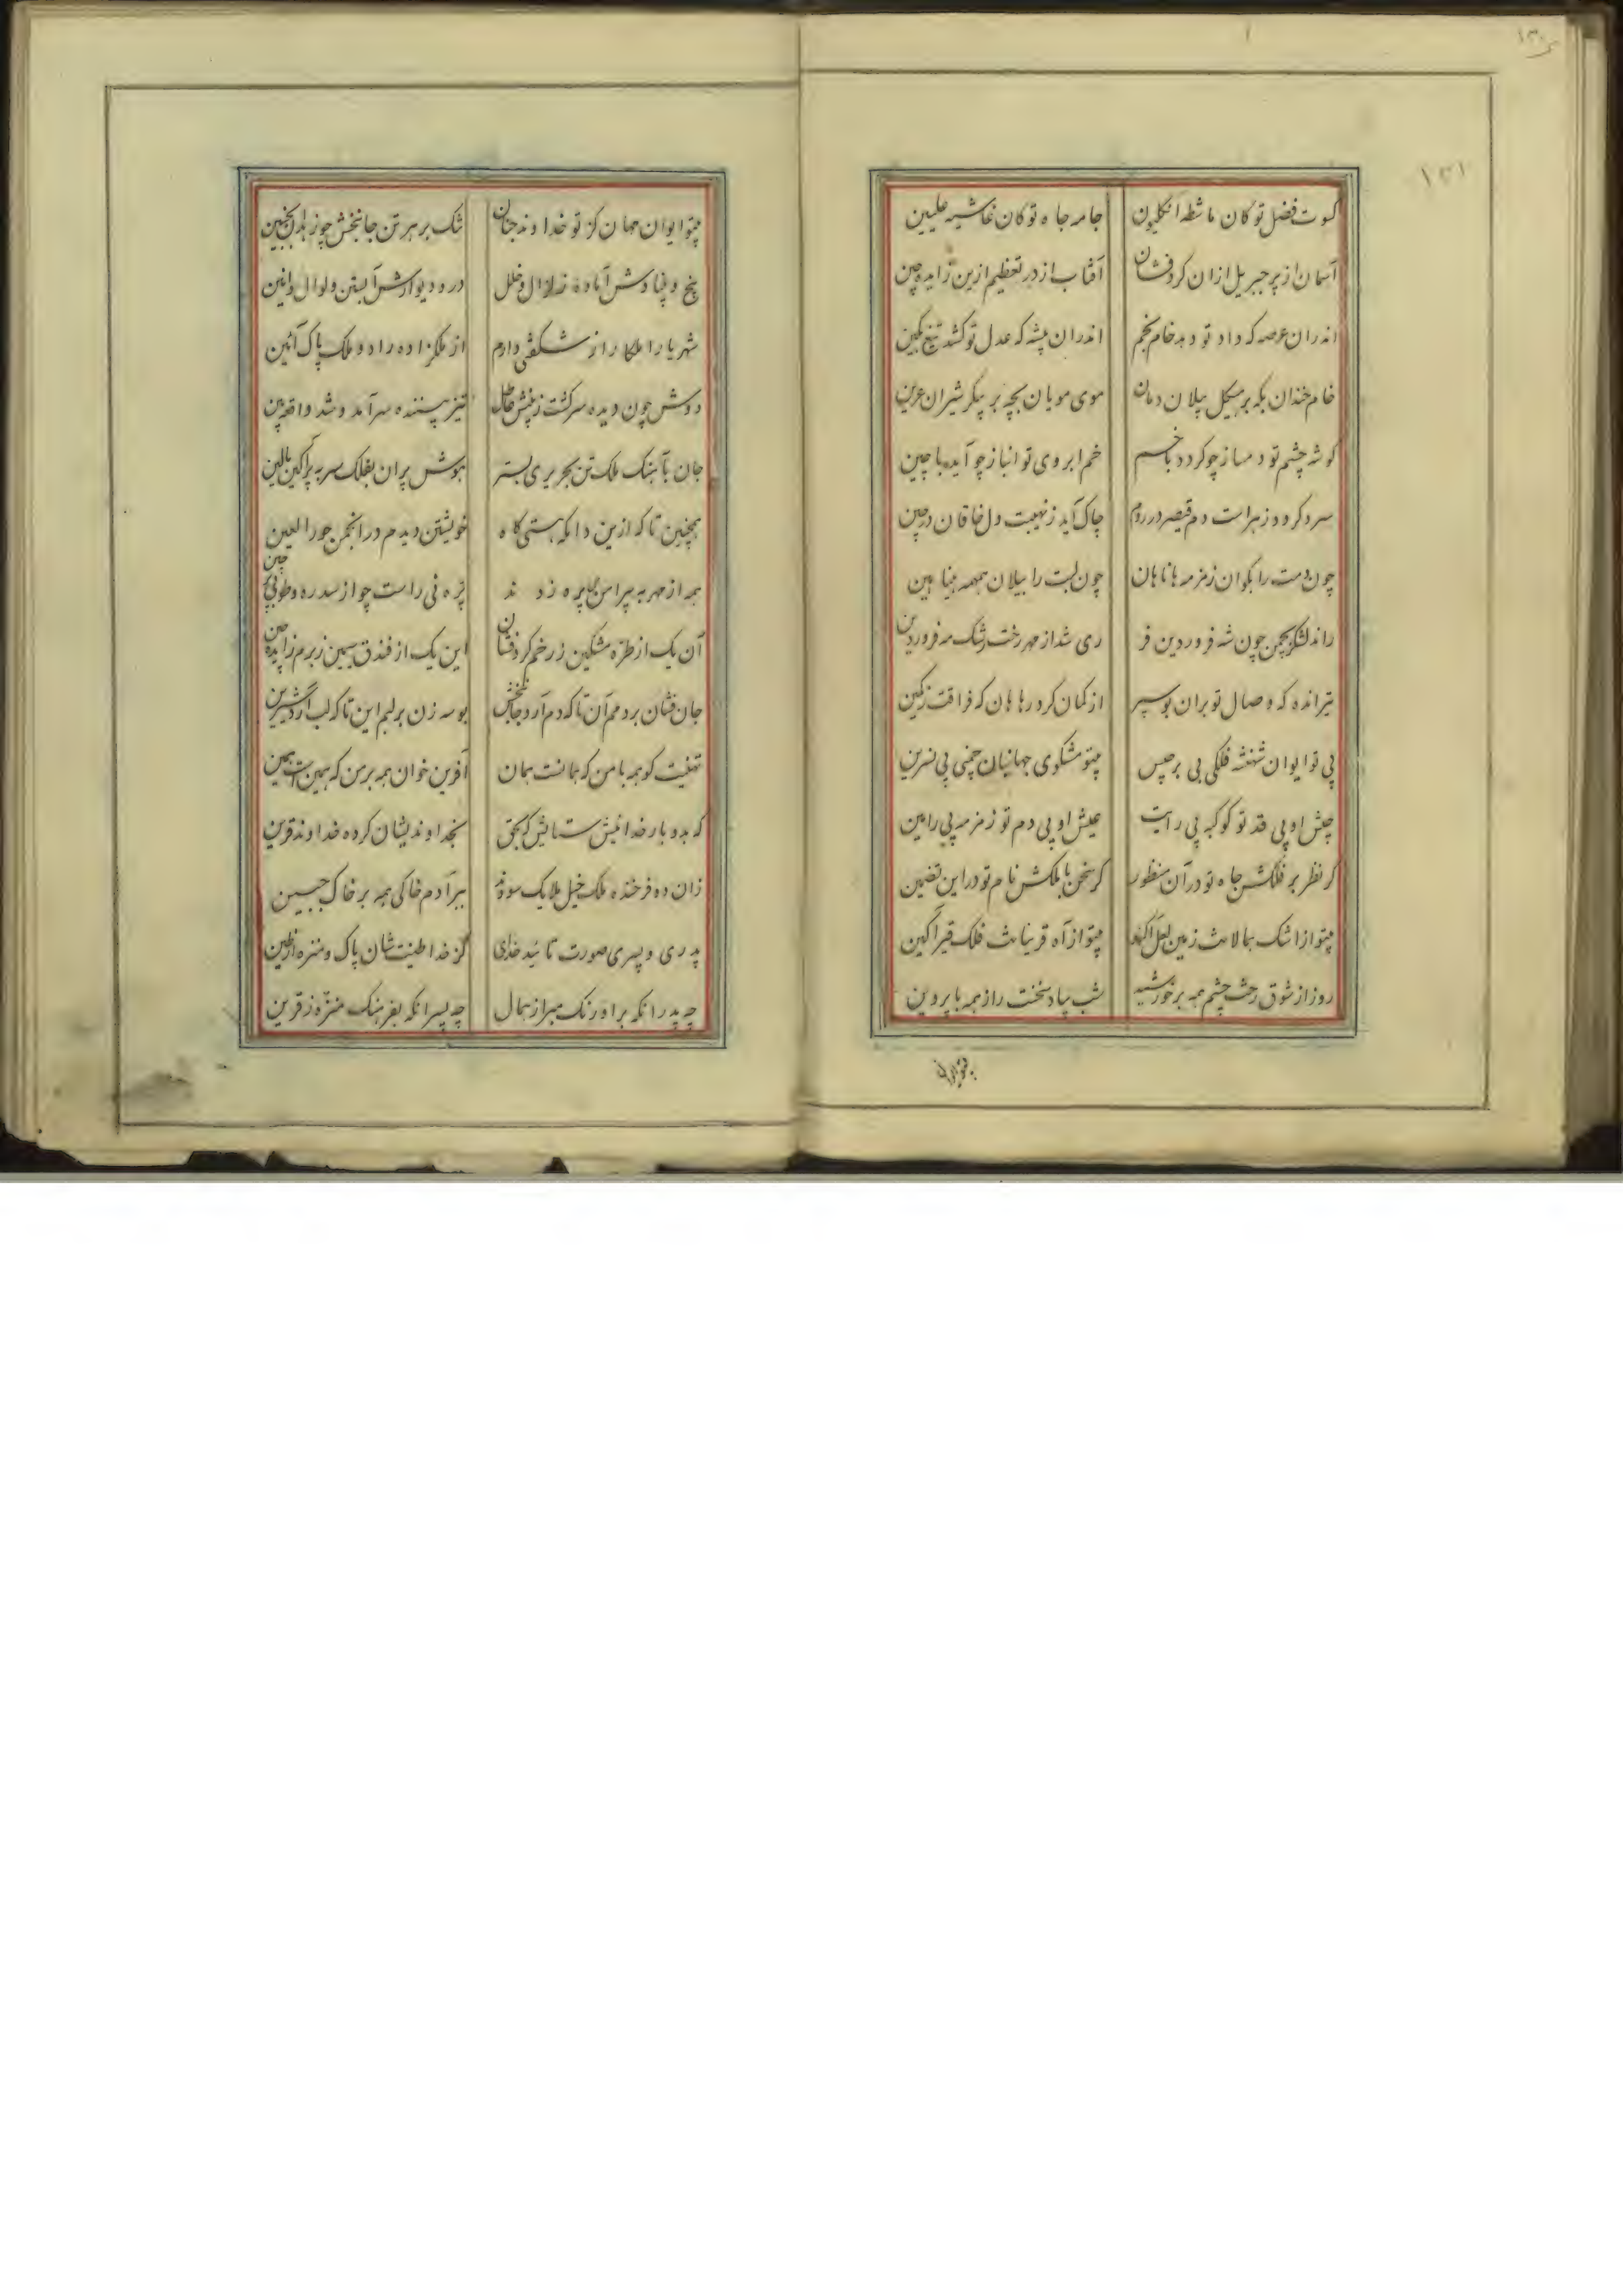 ۱۳۰
۱۳۱
کسوت فضل تو کان ماشطه انکلیون جامه جاه تو کان غاشیه علیین
آسمان از پر جبریل ازان کرد فشان آفتاب از در تعظیم ازین زاید چین
اندران عرصه که داد تو دهد خام بخم اندران پشه که عدل تو کشد تیغ بکین
خام خندان بکه بر هیکل پیلان دمان موی مویان بچه بر پیکر شیران عرین
کوشه چشم تو دمساز چو کردد با خم ابروی تو انباز چو آید با چین
سرد کردد ز هراست دم قیصر در روم چاک آید ز نهیبت دل خاقان در چین
چون دست را بکوان زمزمه هانا هان چون لبت را بیلان همهمه هینا هین
راند لشکر بچمن چون شه فروردین فر ری شد از مهر رخت رشک مه فروردین
تیر انده که وصال تو بران بو سپر از کمان کرد رها هان که فراقت ز کمین
بی تو ایوان شهنشه فلکی بی برجیس بیتو مشکوی جهانبان چمنی بی نسرین
جیش او بی قد تو کوکبه بی رایت عیش او بی دم تو زمزمه بی رامین
کر نظر بر فلکش جاه تو در آن منظور کر سخن با ملکش نام تو در این تضمین
بیتو از اشک بمالات زمین لعل آکند بیتو از آه قرینانت فلک قیر آکین
روز از شوق رخت چشم همه بر خورشید شب بیاد سخنت راز همه با پروین
بیتو ایوان
بیتو ایوان مهان کز تو خداوند جنان تنک بر هر تن جانبخش چو زندان
بیخ و بنیادش آماده زلزال و خلل در و دیوارش آبستن ولوال و انین
شهریارا ملکا راز شکفتی دارم از ملکزاده راد و ملک پاک آئین
دوش چون دیده سر کشت ز بینش عاطل تیز بیننده سر آمد و شد واقعه بین
جان بآهنک ملک تن بحریری بستر هوش پران بفلک سر به پرآکین بالین
همچنین تا که ازین دامکه هستی کاه خویشتن دیدم در انجمن حورالعین
همه از مهر به پیرامن من پره زدند پره نی راست چو از سدره و طوبی پرچین
آن یک از طره مشکین ز رخم کرد فشان این یک از فندق سیمین ز برم زاینده چین
جان فشان بر دمم آن تا که دم آرد جانبخش بوسه زن بر لبم این تا که لب آرد شیرین
تهنیت کو همه با من که همانست همان آفرین خوان همه بر من که همین است همین
که بدو بار خدائیش ستایش که بحق بخداوندیشان کرده خداوند قرین
زان دو فرخنده ملک خیل ملایک سوده ببر آدم خاکی همه بر خاک جبین
پدری و پسری صورت تائید خدای کز خدا طینتشان پاک و منزه از طین
چه پدر آنکه بر اورنک مبرا ز همال چه پسر آنکه بفرهنک منزه ز قرین